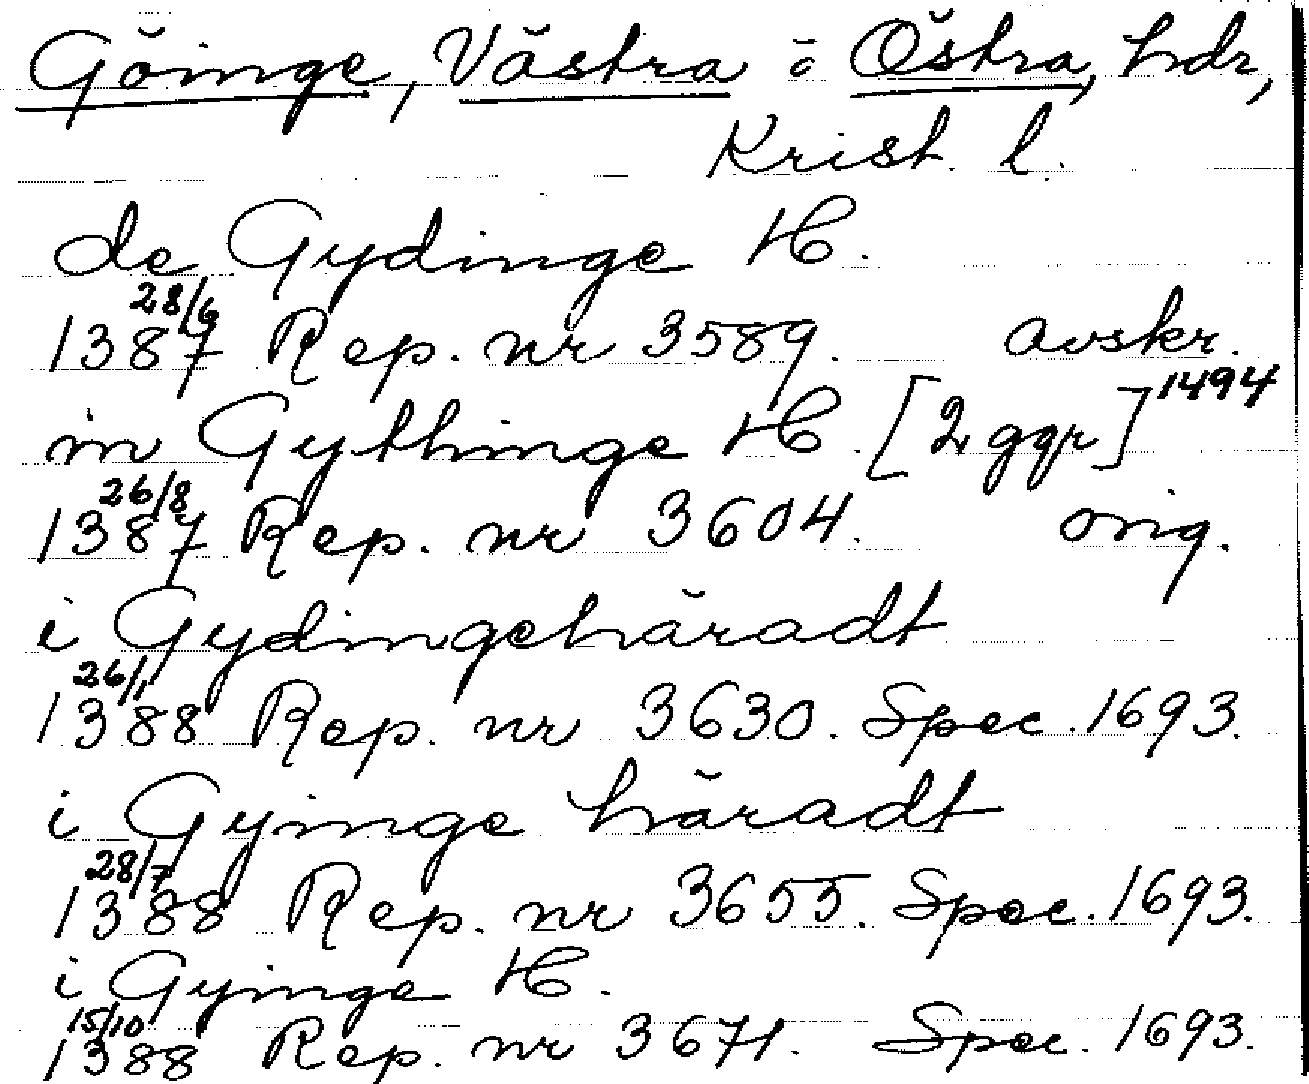 Göinge, Västra o Östra, hdr,
Krist. l.
de Gydinge H.
28/6
1387 Rep. nr 3589. avskr.
1494
in Gythinge H. [2 ggr]
26/8
1387 Rep. nr 3604. orig.
i Gydingehäradt
26/1
1388 Rep. nr 3630. Spec. 1693.
i Gyinge häradt
28/7
1388 Rep. nr 3655. Spec. 1693.
i Gyinge H.
15/10
1388 Rep. nr 3671. Spec. 1693.